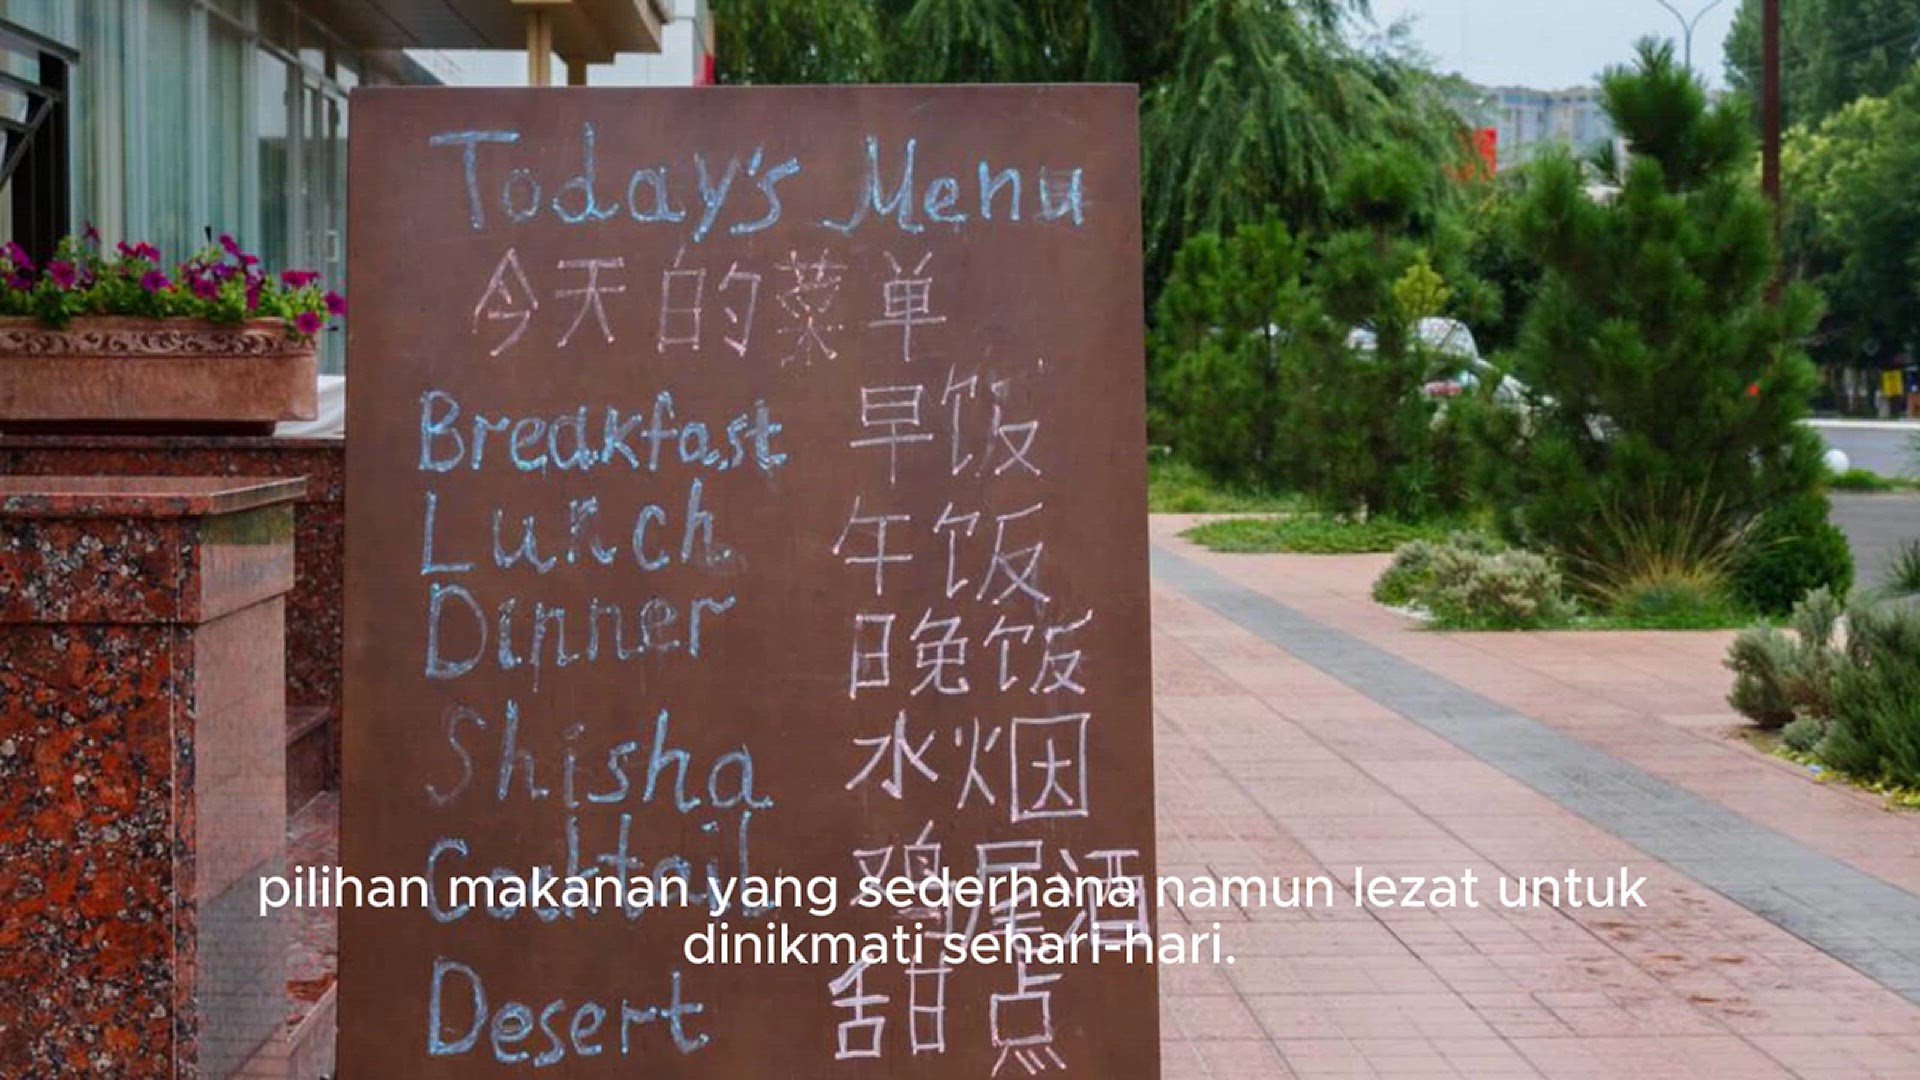 Today's Menu
今天的菜单
Breakfast 早饭
Lunch 午饭
Dinner 晚饭
Shisha 水烟
Cocktail 鸡尾酒
pilihan makanan yang sederhana namun lezat untuk
dinikmati sehari-hari.
Desert 甜点